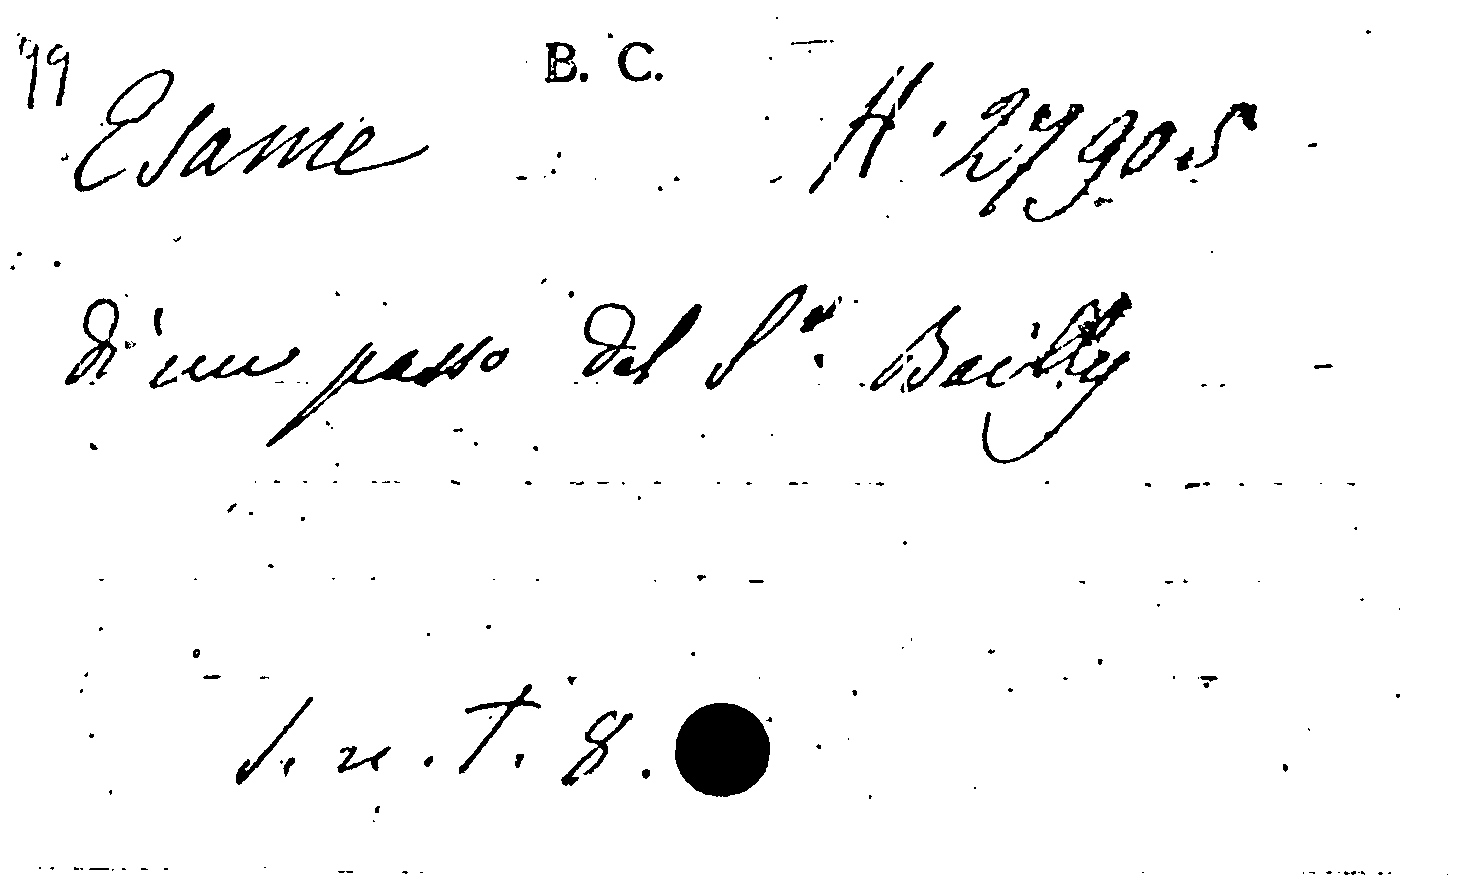 99 B. C.
Esame H. 27905
d'un passo del S.r Bailly
s. n. T. 8.